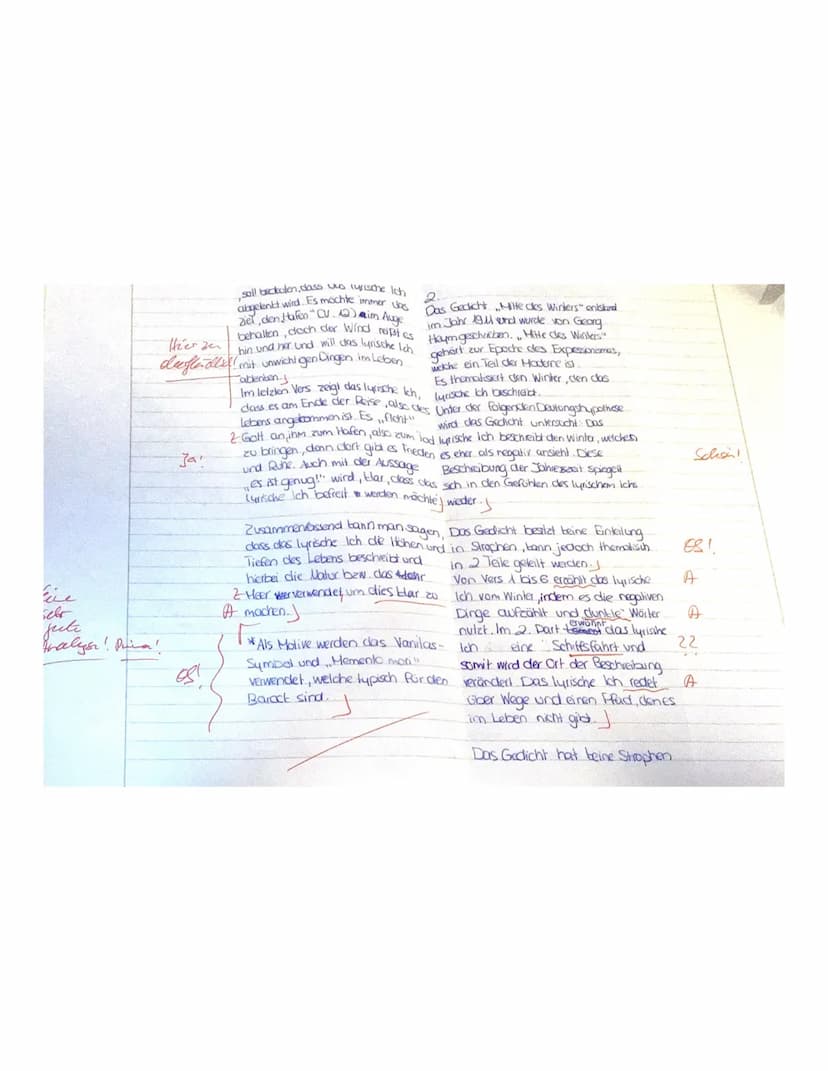 soll bedeuten, dass das lyrische Ich
abgelenkt wird. Es möchte immer das
Ziel, den „Hafen" (V. 12) im Auge
behalten, doch der Wind reißt es
hin und her und will das lyrische Ich
mit unwichtigen Dingen im Leben
ablenken.
Im letzten Vers zeigt das lyrische Ich,
dass es am Ende der Reise, also des
Lebens angekommen ist. Es „fleht"
Z Gott an, ihn zum Hafen, also zum Tod
zu bringen, denn dort gibt es Frieden
Ja!
und Ruhe. Auch mit der Aussage
„es ist genug!" wird, klar, dass das
lyrische Ich befreit werden möchte
Zusammenfassend kann man sagen,
dass das lyrische Ich die Höhen und
Tiefen des Lebens beschreibt und
hierbei die Natur bzw. das
Z Meer verwendet, um dies klar zu
A machen.
Eine
sehr
gute
Analyse! Prima!
*Als Motive werden das Vanitas-
Symbol und „Memento mori"
ES!
verwendet, welche typisch für den
Barock sind.
2.
Das Gedicht „Mitte des Winters" entstand
im Jahr 1911 und wurde von Georg
Heym geschrieben. „Mitte des Winters"
gehört zur Epoche des Expressionismus,
welche ein Teil der Moderne ist.
Es thematisiert den Winter, den das
lyrische Ich beschreibt.
Unter der folgenden Deutungshypothese
wird das Gedicht untersucht: Das
lyrische Ich beschreibt den Winter, welchen
es eher als negativ ansieht. Diese
Schön!
Beschreibung der Jahreszeit spiegelt
sich in den Gefühlen des lyrischem Ichs
wieder.
Das Gedicht besitzt keine Einteilung
in Strophen, kann jedoch thematisch
ES!
in 2 Teile geteilt werden.
Von Vers 1 bis 6 erzählt das lyrische
A
Ich vom Winter, indem es die negativen
Dinge aufzählt und „dunkle" Wörter
A
nutzt. Im 2. Part erwähnt das lyrische
Ich eine Schiffsfahrt und
??
somit wird der Ort der Beschreibung
verändert. Das lyrische Ich redet
A
über Wege und einen Pfad, den es
im Leben nicht gibt.
Das Gedicht hat keine Strophen